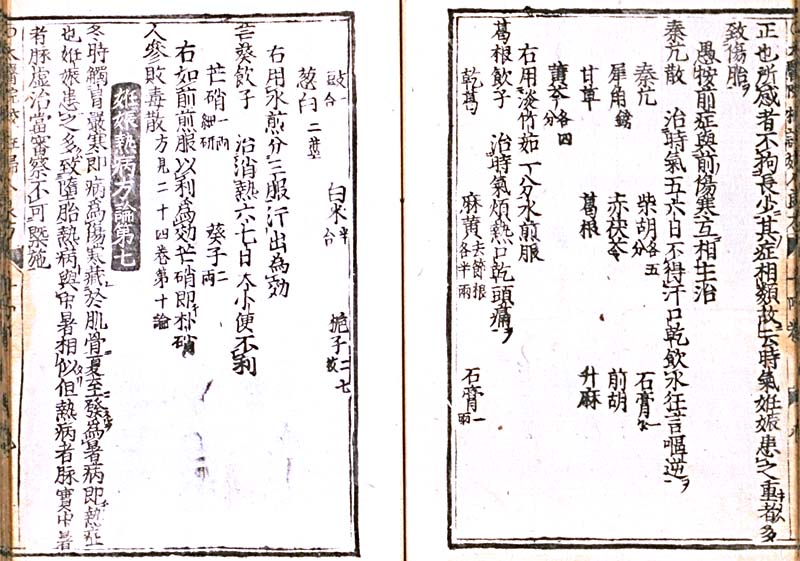 正也所感者不拘長少其症相類故云時氣姙娠患之重者多
致傷胎
愚按前症與前傷寒互相主治
秦艽散 治時氣五六日不得汗口乾飲水狂言嘔逆
秦艽 柴胡各五分 石膏一
犀角鎊 赤茯苓 前胡
甘草 葛根 升麻
黄芩各四分
右用淡竹茹一分水煎服
葛根飲子 治時氣煩熱口乾頭痛
乾葛 麻黄去節根各半兩 石膏一兩
豉一合 白米半合 梔子二七枚
葱白二莖
右用水煎分三服汗出為効
葵飲子 治消熱六七日大小便不利
芒硝一兩細研 葵子二兩
右如前煎服以利為効芒硝即朴硝
人參敗毒散方見二十四卷第十論
姙娠熱病方論第七
冬時觸冒嚴寒即病為傷寒藏於肌骨夏至發為暑病即熱症
也姙娠患之多致墮胎熱病與中暑相似但熱病者脉實中暑
者脉虚治當審察不可槩施